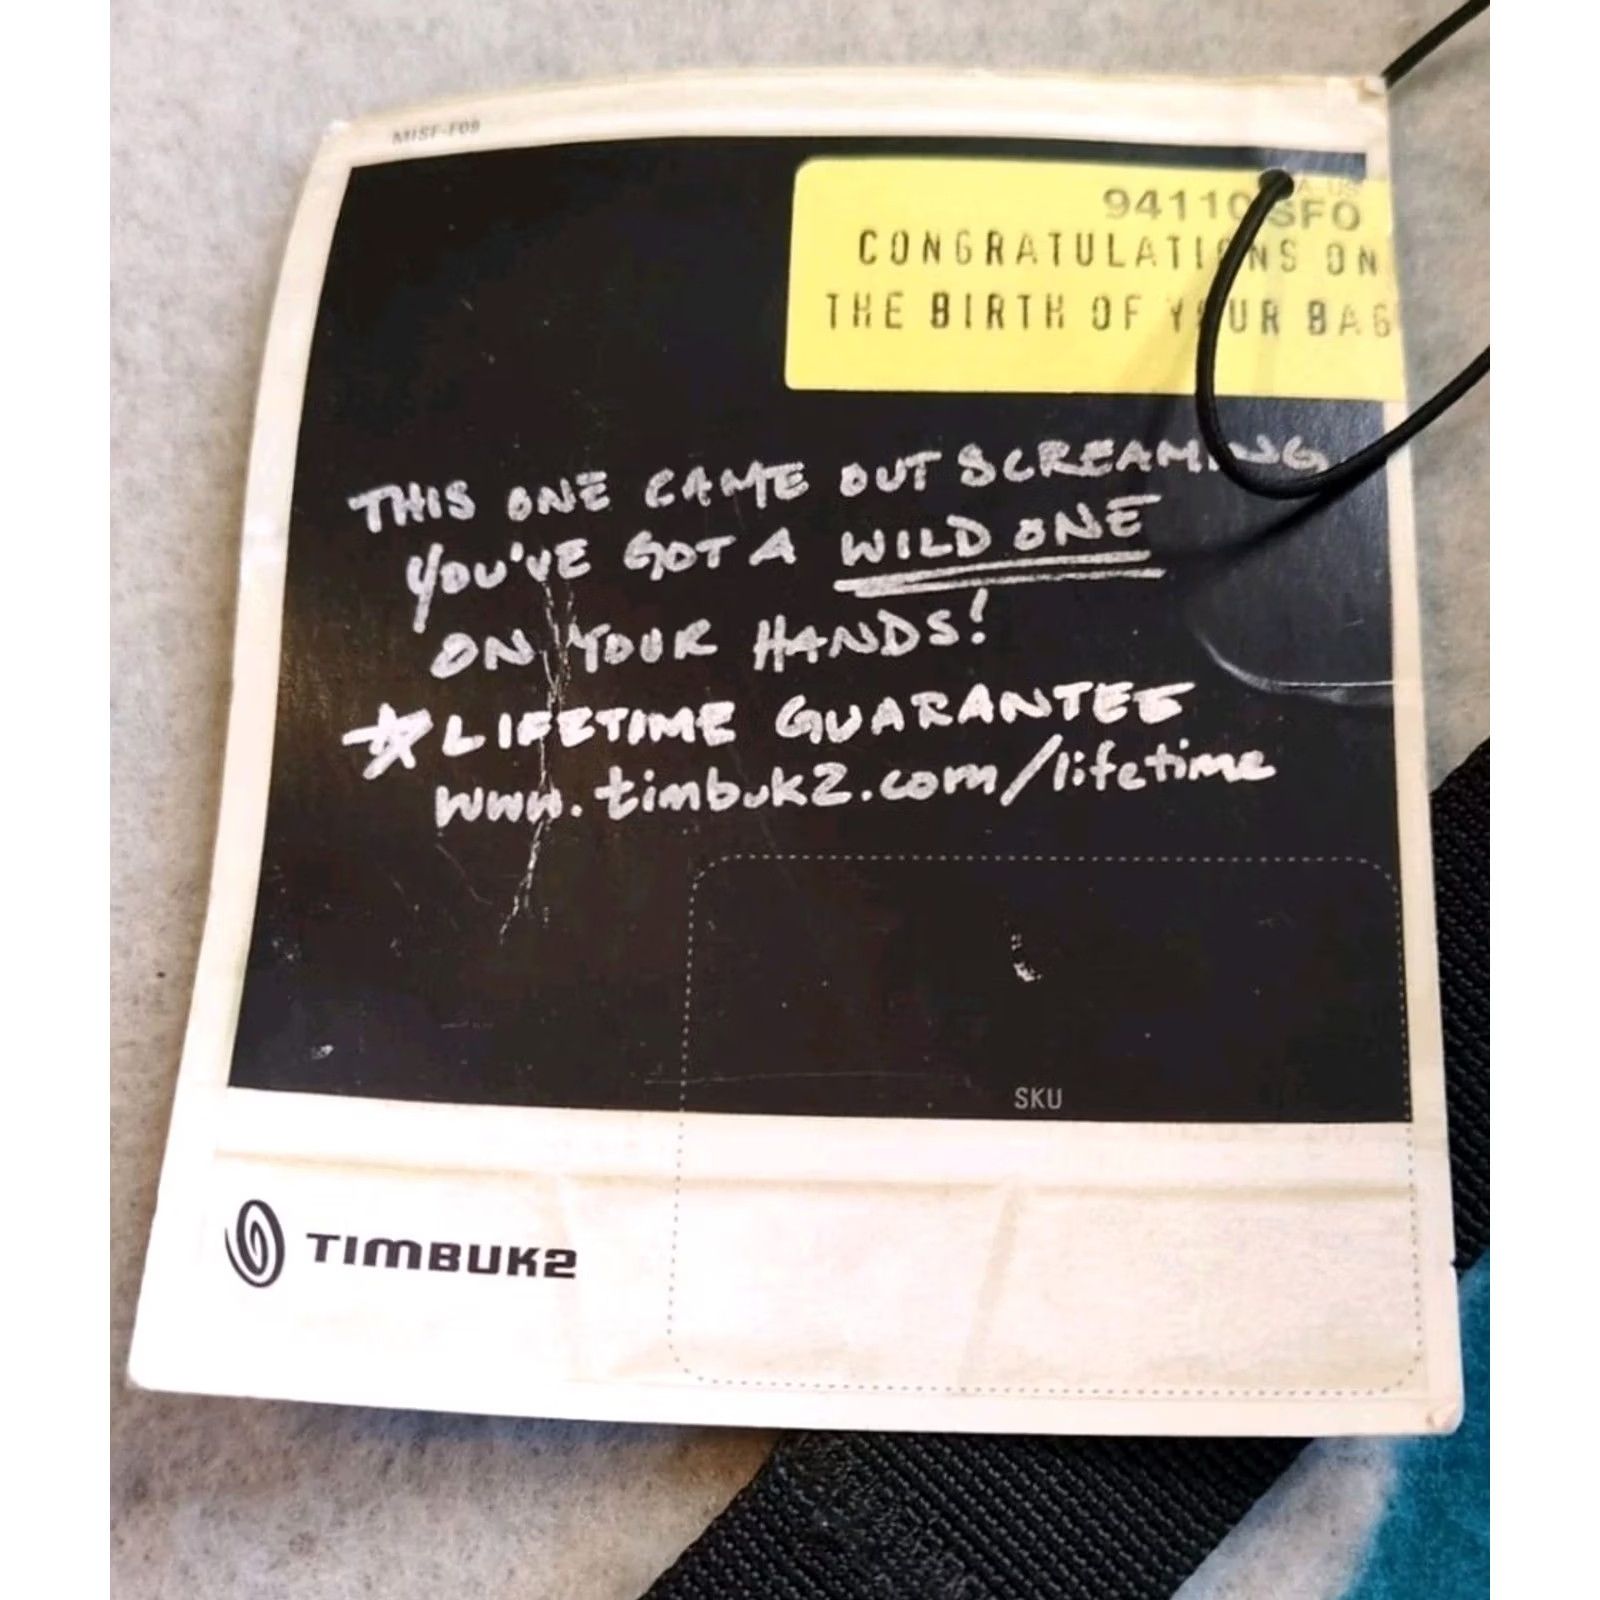 MISF-F09
94110 SFO
CONGRATULATIONS ON
THE BIRTH OF YOUR BAG
THIS ONE CAME OUT SCREAMING
YOU'VE GOT A WILD ONE
ON YOUR HANDS!
☆ LIFETIME GUARANTEE
www.timbuk2.com/lifetime
SKU
TIMBUK2